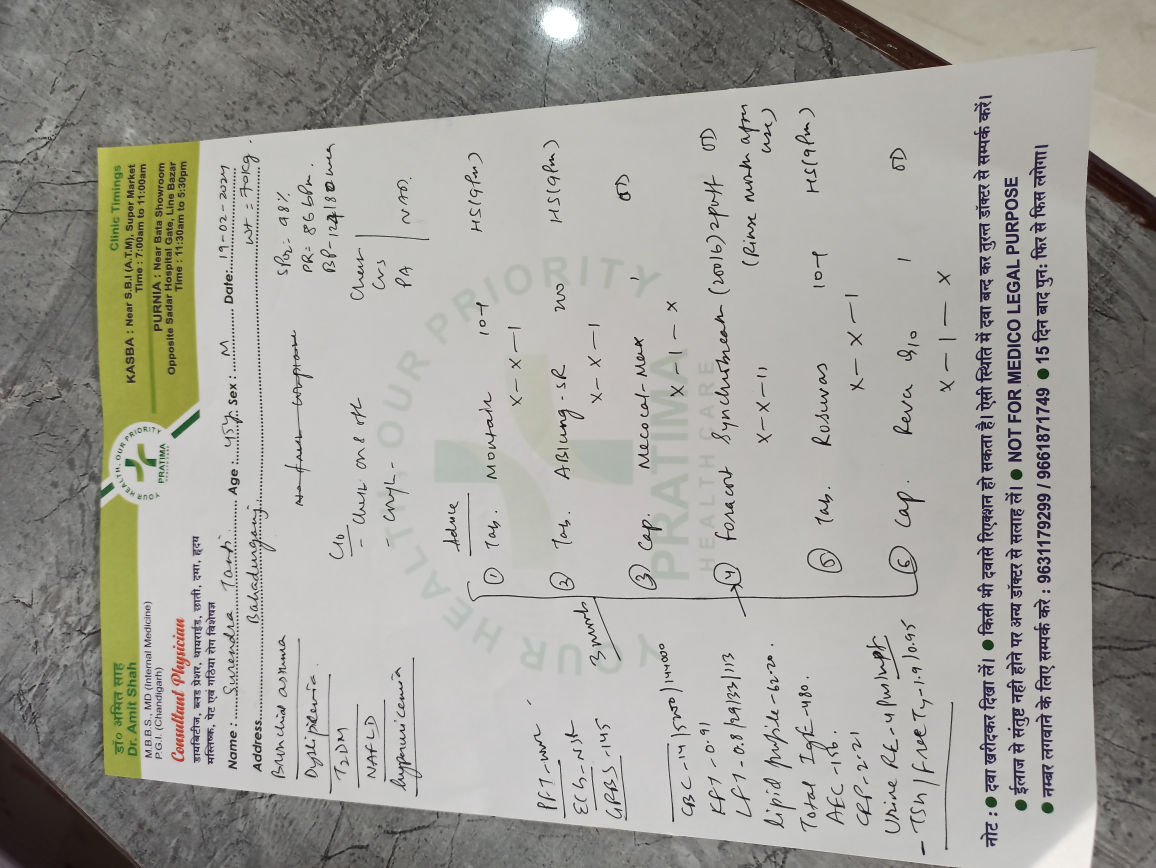 डां० अमित साह
Dr. Amit Shah
M.B.B.S., MD (Internal Medicine)
P.G.I. (Chandigarh)
Consultant Physician
डायबिटीज, ब्लड प्रेशर, थायराईड, छाती, दमा, हृदय
मस्तिष्क, पेट एवं गठिया रोग विशेषज्ञ
YOUR HEALTH, OUR PRIORITY
PRATIMA
HEALTHCARE
Clinic Timings
KASBA : Near S.B.I (A.T.M), Super Market
Time : 7:00am to 11:00am
PURNIA : Near Bata Showroom
Opposite Sadar Hospital Gate, Line Bazar
Time : 11:30am to 5:30pm
Name : Surendra Tanti Age : 45y Sex : M Date: 19-02-2024
Address Bahadurganj Wt = 70kg.
Bronchial asthma
Dyslipidemia
T2DM
NAFLD
hyperuricemia
SPO2 = 98%
PR = 86 bpm.
BP - 124/80
Chest
CVS
PA
NAD.
C/o
- chest on & off
Advice
① Tab. Montair 10-1 HS (9Pm)
X - X - 1
② Tab. ABlung-SR 200 HS (9Pm)
X - X - 1
③ Cap. Mecocal-Max 1 OD
X - 1 - X
④ Foracort Synchrobreath (200/6) 2 puff OD
X - X - 11 (Rinse mouth after use)
⑤ Tab. Rosuvas 10-1 HS (9Pm)
X - X - 1
⑥ Cap. 1 OD
X - 1 - X
PFT -
ECG - NSR
GRBS - 145
CBC - 14/5200/144000
KFT - 0.91
LFT - 0.8/29/33/113
lipid profile - 6220.
Total IgE - 480.
AEC - 156.
CRP - 2.21
Urine RE - 4 Pus/hpf
- TSH/Free T4 - 1.9/0.95
नोट : ● दवा खरीदकर दिखा लें। ● किसी भी दवासे रिएक्शन हो सकता है। ऐसी स्थिति में दवा बन्द कर तुरन्त डॉक्टर से सम्पर्क करें।
● ईलाज से संतुष्ट नही होने पर अन्य डॉक्टर से सलाह लें। ● NOT FOR MEDICO LEGAL PURPOSE
● नम्बर लगवाने के लिए सम्पर्क करे : 9631179299 / 9661871749 ● 15 दिन बाद पुनः फिर से फिस लगेगा।